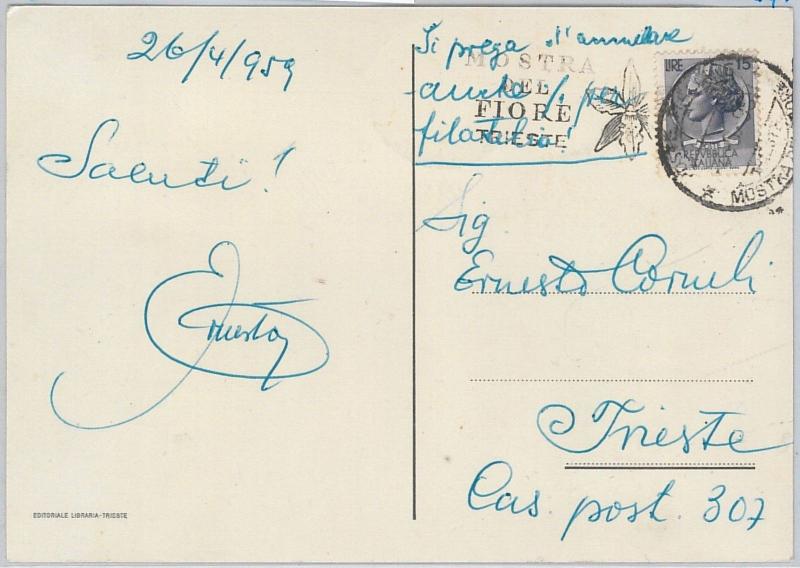 26/4/959
Saluti!
Ernesto
EDITORIALE LIBRARIA-TRIESTE
Si prega d'annullare
anche per
filatelia!
MOSTRA
DEL
FIORE
TRIESTE
LIRE 15
REPVBBLICA
ITALIANA
MOSTRA
Sig
Ernesto Corneli
Trieste
Cas. post. 307